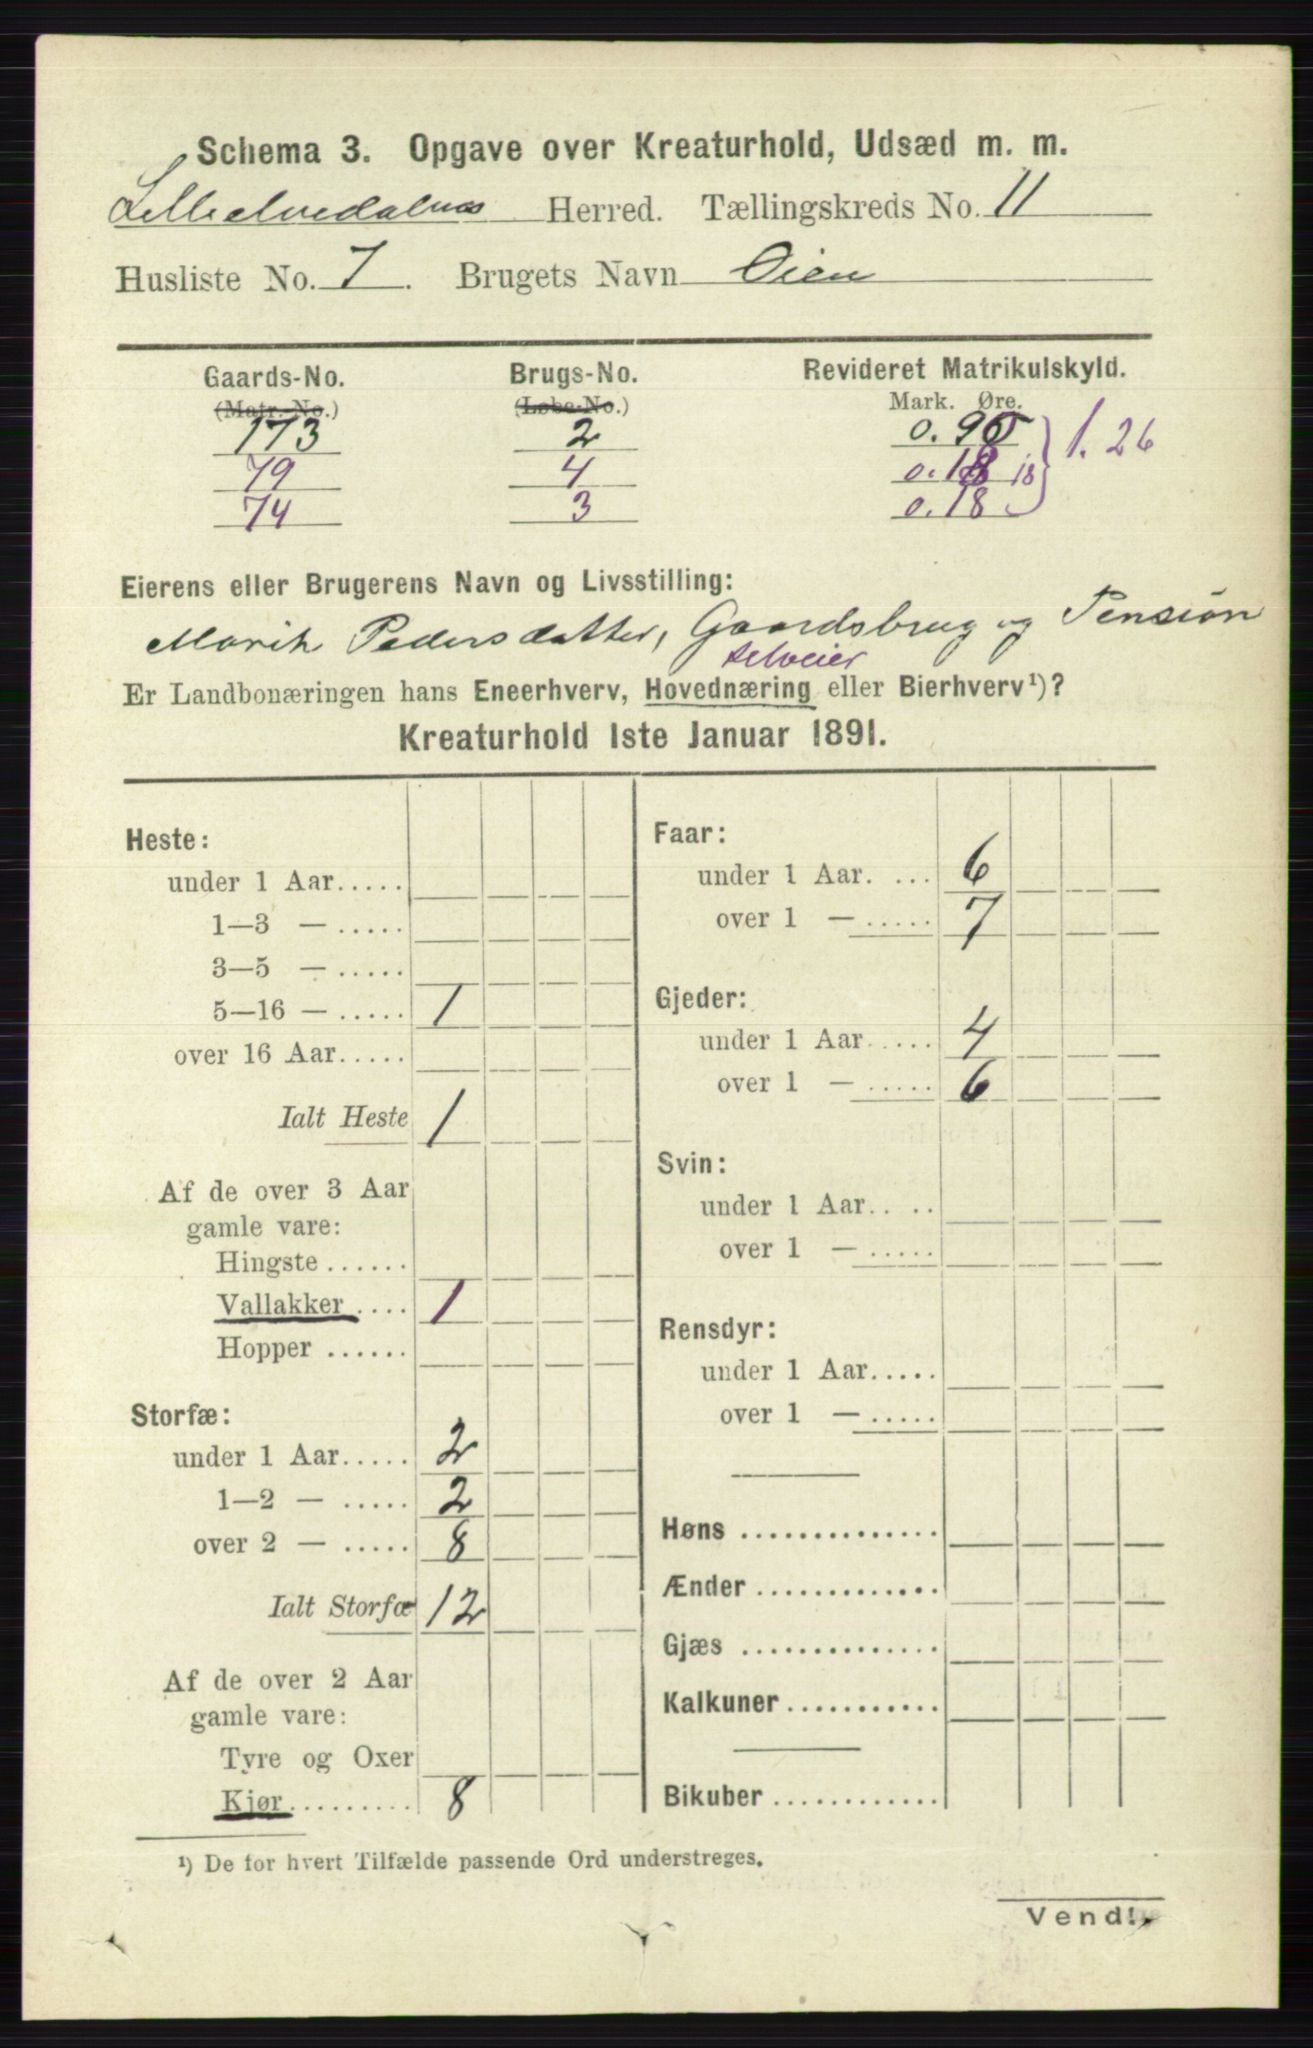 Schema 3. Opgave over Kreaturhold, Udsæd m. m.
Lilleelvedalens Herred. Tællingskreds No. 11
Husliste No. 7. Brugets Navn Øien
Gaards-No. Brugs-No. Revideret Matrikulskyld.
(Matr.-No.) (Løbe-No.) Mark. Øre.
173 2 0.90 1.26
79 4 0.18 18
74 3 0.18
Eierens eller Brugerens Navn og Livsstilling:
Marith Pedersdatter, Gaardsbrug og Pension
selveier
Er Landbonæringen hans Eneerhverv, Hovednæring eller Bierhverv¹)?
Kreaturhold 1ste Januar 1891.
Heste:
under 1 Aar.....
1—3 — .....
3—5 — .....
5—16 — ..... 1
over 16 Aar.....
Ialt Heste 1
Af de over 3 Aar
gamle vare:
Hingste......
Vallakker .... 1
Hopper ......
Storfæ:
under 1 Aar..... 2
1—2 — ..... 2
over 2 — ..... 8
Ialt Storfæ 12
Af de over 2 Aar
gamle vare:
Tyre og Oxer
Kjør......... 8
Faar:
under 1 Aar. ... 6
over 1 — ..... 7
Gjeder:
under 1 Aar..... 4
over 1 — ..... 6
Svin:
under 1 Aar.. ..
over 1 — .....
Rensdyr:
under 1 Aar.....
over 1 — .....
Høns ..............
Ænder .............
Gjæs ..............
Kalkuner ...........
Bikuber ............
¹) De for hvert Tilfælde passende Ord understreges.
Vend!